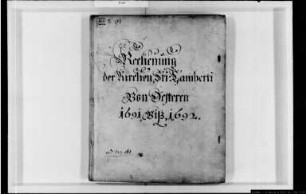 Rechenung
der Kirchen Sti Lamberti
Von Oesteren
1691 Biß 1692.